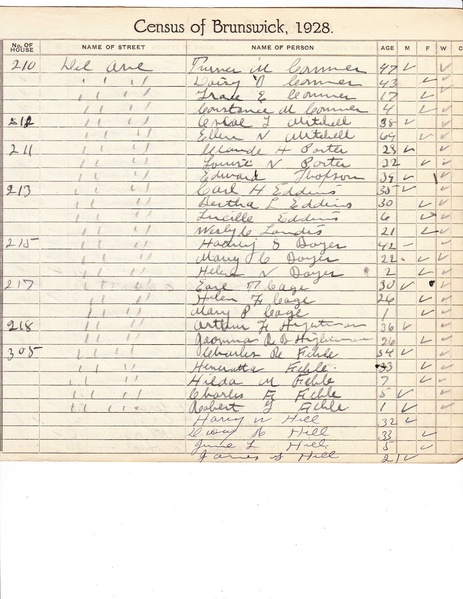 Census of Brunswick, 1928.
No. OF HOUSE NAME OF STREET NAME OF PERSON AGE M F W C
210 Del Ave Turner M Commer 47 ✓ ✓
" " " Daisy V Commer 43 ✓ ✓
" " " E Commer 17 ✓ ✓
" " " Constance M Commer 4 ✓ ✓
212 " " Mitchell 38 ✓ ✓
" " Ellen N Mitchell 64 ✓ ✓
211 " " Claude H Porter 23 ✓ ✓
" " Louise N Porter 32 ✓ ✓
" " Edward 39 ✓ ✓
213 " " Carl H Eddins 35 ✓ ✓
" " Bertha L Eddins 30 ✓ ✓
" " Lucille Eddins 6 ✓ ✓
" " Landis 21 ✓ ✓
215 " " S Doyer 42 ✓
" " Mary C Doyer 22 ✓ ✓
" " Helen N Doyer 2 ✓ ✓
217 " " Earl Cage 30 ✓ ✓
" " Helen F Cage 26 ✓ ✓
" " Mary P Cage 1 ✓ ✓
218 " " Arthur H 36 ✓ ✓
" " 26 ✓ ✓
305 " " Charles Fehle 34 ✓ ✓
" " " Henrietta Fehle 33 ✓ ✓
" " " Hilda M Fehle 7 ✓ ✓
" " " Charles F Fehle 5 ✓ ✓
" " " Robert Fehle 1 ✓ ✓
Harry W Hill 32 ✓
Hill 33 ✓
June L Hill 5 ✓
James S Hill 2 ✓